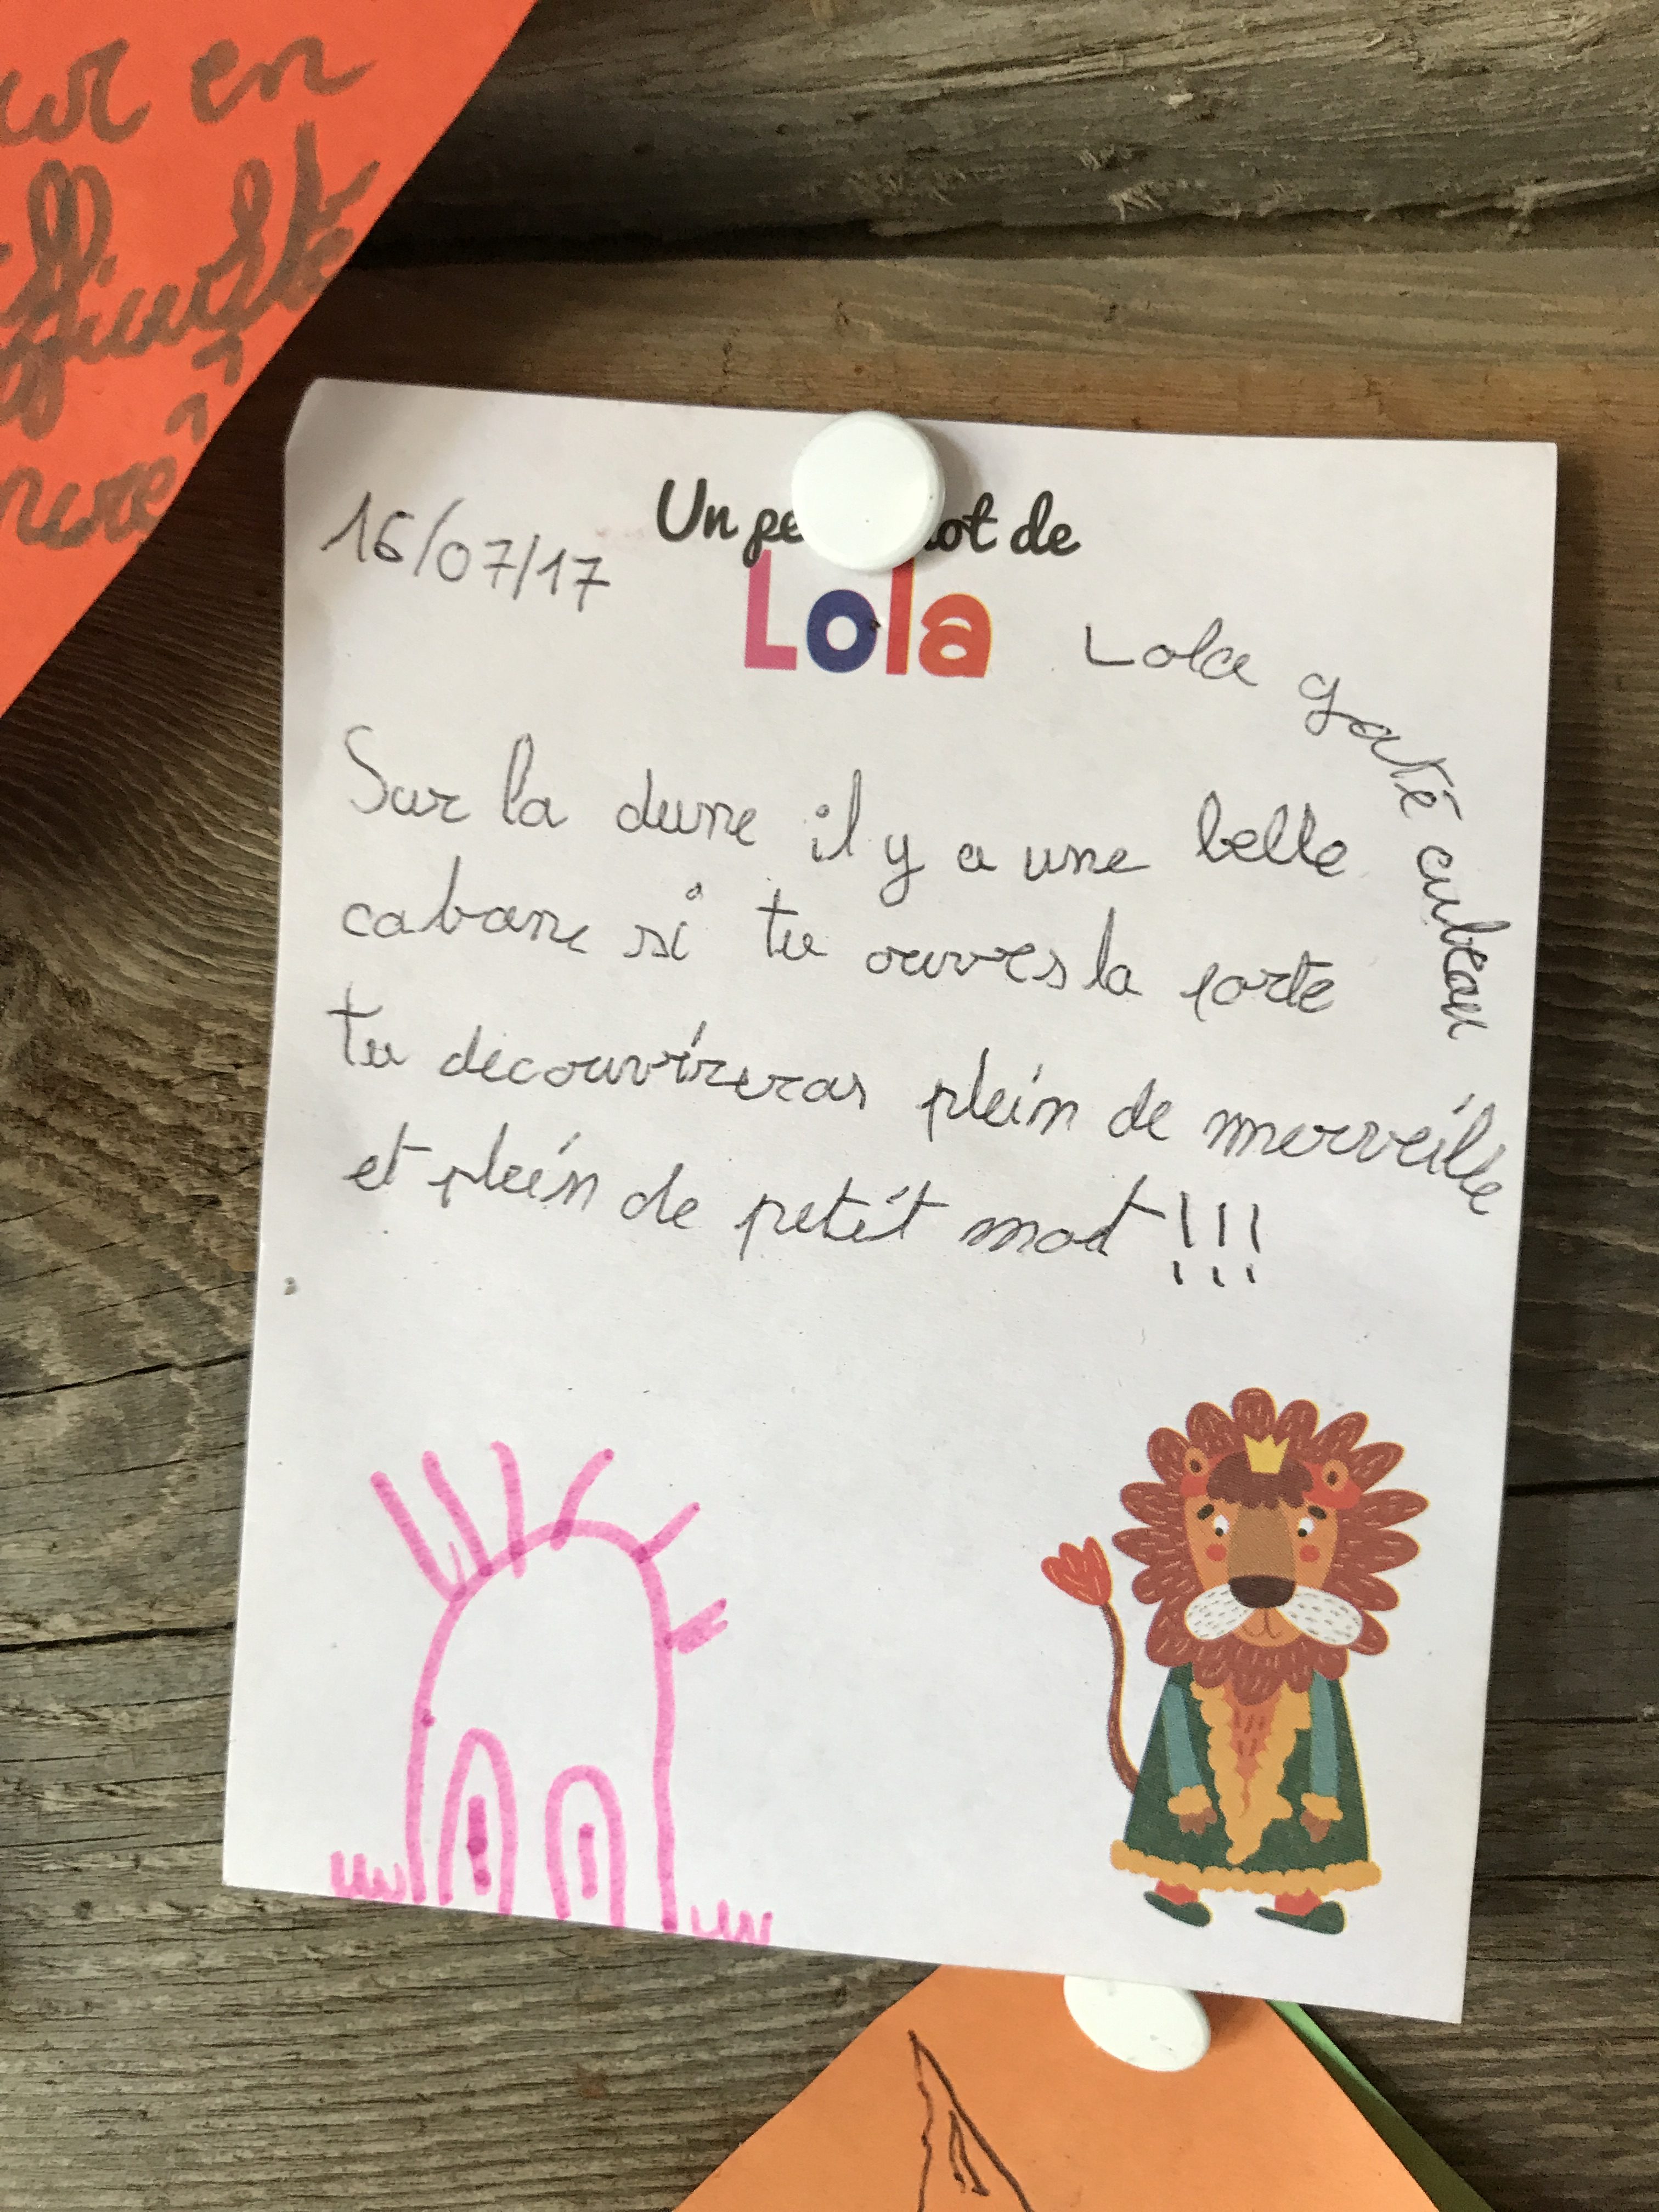 en
16/07/17
Un pe ot de
Lola
Lola gaté
Sur la dune il y a une belle
cabane si tu ouvres la porte
tu decouvrireras plein de merveille
et plein de petit mot !!!